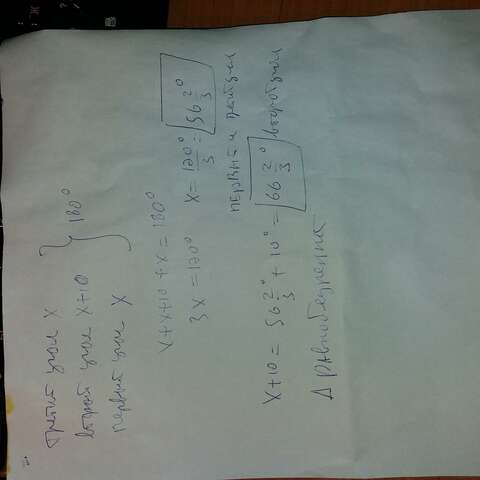 третий угол x
второй угол x+10 } 180°
первый угол x
x+x+10+x=180°
3x=170° x=170°/3=56 2/3°
первый и третий угол
x+10=56 2/3°+10°=66 2/3° второй угол
Δ равнобедренный